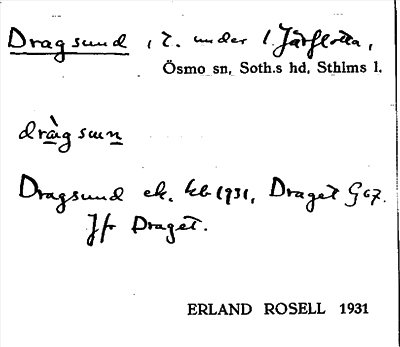 Dragsund, t. under l. Järflotta,
Ösmo sn, Soth.s hd, Sthlms l.
dràgsun
Dragsund ek. kb 1931, Draget G 67.
Jfr Draget.
ERLAND ROSELL 1931